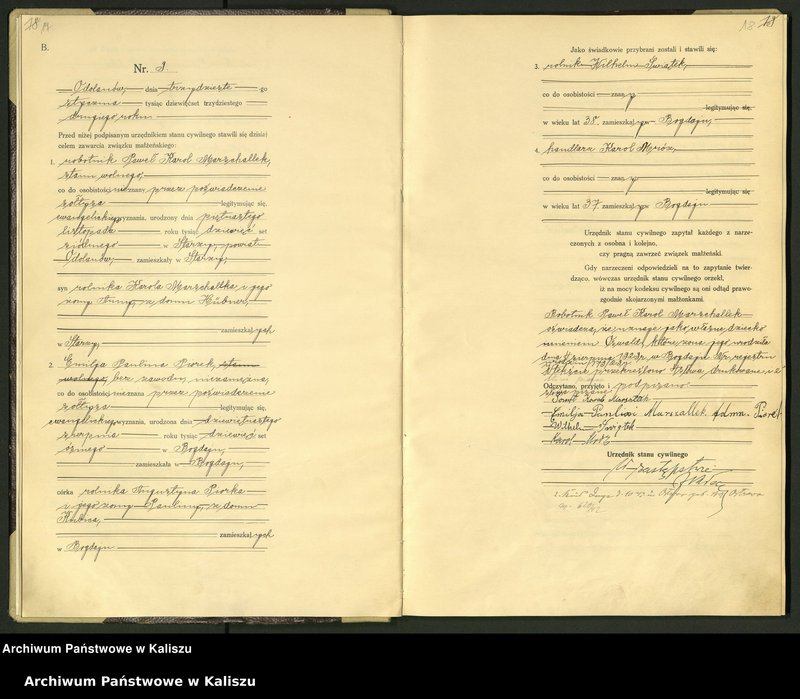 B.
Nr. 3
Odolanów, dnia trzydziesto go
stycznia tysiąc dziewięćset trzydziestego
drugiego roku
Przed niżej podpisanym urzędnikiem stanu cywilnego stawili się dzisiaj
celem zawarcia związku małżeńskiego:
1. robotnik Paweł Karol Marschallek,
stanu wolnego,
co do osobistości nieznany przez poświadczenie
sołtysa legitymując się,
ewangelickiego wyznania, urodzony dnia piętnastego
listopada roku tysiąc dziewięć set
siódmego w Starzy, powiat
Odolanów, zamieszkały w Starzy,
syn rolnika Karola Marschallka i jego
żony Anny, z domu Hübner,
zamieszkałych
w Starzy,
2. Emilja Paulina Piorek, stanu
wolnego, bez zawodu, niezamężna,
co do osobistości nieznana przez poświadczenie
sołtysa legitymując się,
ewangelickiego wyznania, urodzona dnia dziewiętnastego
sierpnia roku tysiąc dziewięć set
ósmego w Bogdaju,
zamieszkała w Bogdaju,
córka rolnika Augustyna Piorka
i jego żony Pauliny, z domu
zamieszkałych
w Bogdaju
Jako świadkowie przybrani zostali i stawili się:
3. rolnik Wilhelm Świątek,
co do osobistości znany
legitymując się.
w wieku lat 38. zamieszkały w Bogdaju,
4. handlarz Karol Mróz,
co do osobistości znany
legitymując się
w wieku lat 37. zamieszkały w Bogdaju
Urzędnik stanu cywilnego zapytał każdego z narze-
czonych z osobna i kolejno,
czy pragną zawrzeć związek małżeński.
Gdy narzeczeni odpowiedzieli na to zapytanie twier-
dząco, wówczas urzędnik stanu cywilnego orzekł,
iż na mocy kodeksu cywilnego są oni odtąd prawo-
zgodnie skojarzonymi małżonkami.
Robotnik Paweł Karol Marschallek
oświadcza, że uznaje jako własne dziecko
imieniem Oswald, które żona jego urodziła
dnia sierpnia 1929 r. w Bogdaju Nr. rejestru
W tekście przekreślono słowa drukowane, i 2
słowa pisane
Odczytano, przyjęto i podpisano
Paweł Karol
Emilja Paulina Marszallek
Świątek
Karol
Urzędnik stanu cywilnego
W zastępstwie
Archiwum Państwowe w Kaliszu
Archiwum Państwowe w Kaliszu